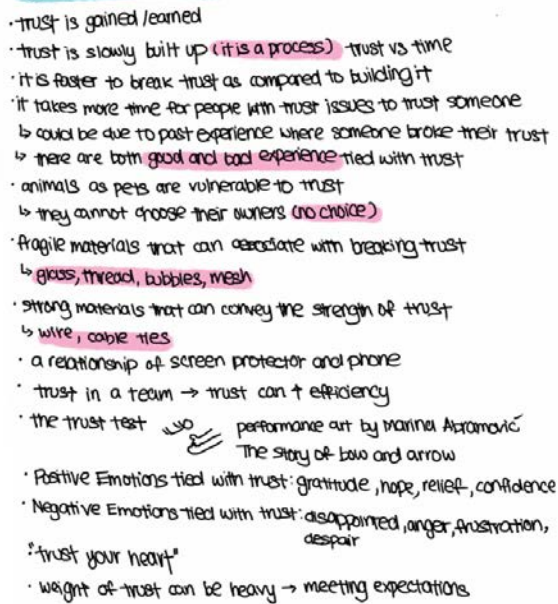 · trust is gained/earned
· trust is slowly built up (it is a process) trust vs time
· it is faster to break trust as compared to building it
· it takes more time for people with trust issues to trust someone
↳ could be due to past experience where someone broke their trust
↳ there are both good and bad experience tied with trust
· animals as pets are vulnerable to trust
↳ they cannot choose their owners (no choice)
· fragile materials that can associate with breaking trust
↳ glass, thread, bubbles, mesh
· strong materials that can convey the strength of trust
↳ wire, cable ties
· a relationship of screen protector and phone
· trust in a team → trust can ↑ efficiency
· the trust test
performance art by Marina Abramović
The story of bow and arrow
· Positive Emotions tied with trust: gratitude, hope, relief, confidence
· Negative Emotions tied with trust: disappointed, anger, frustration,
despair
· "trust your heart"
· weight of trust can be heavy → meeting expectations